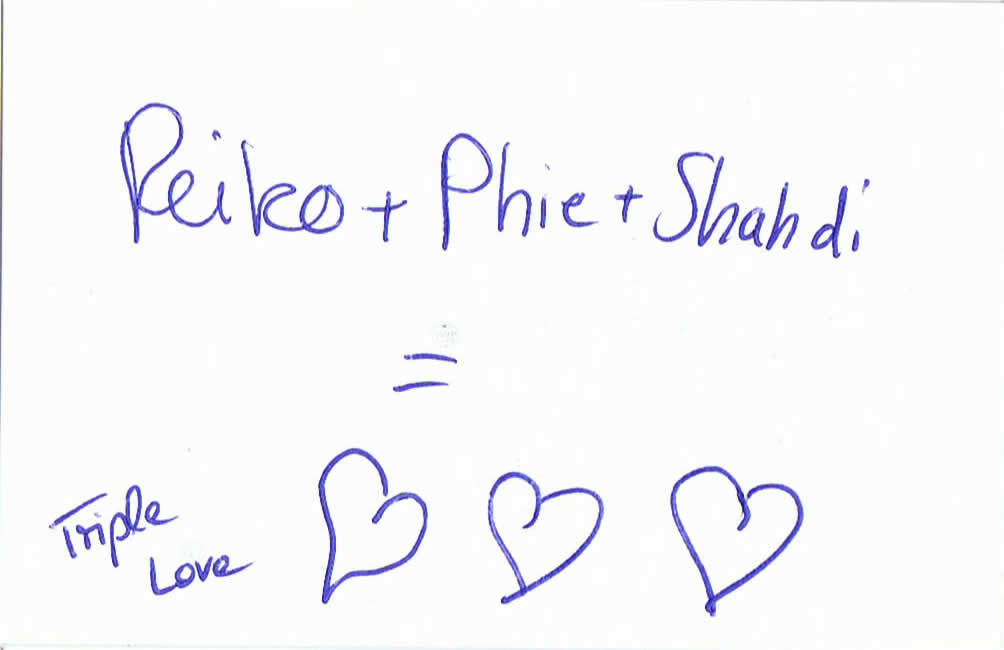 Reiko + Phie + Shahdi
=
Triple
Love